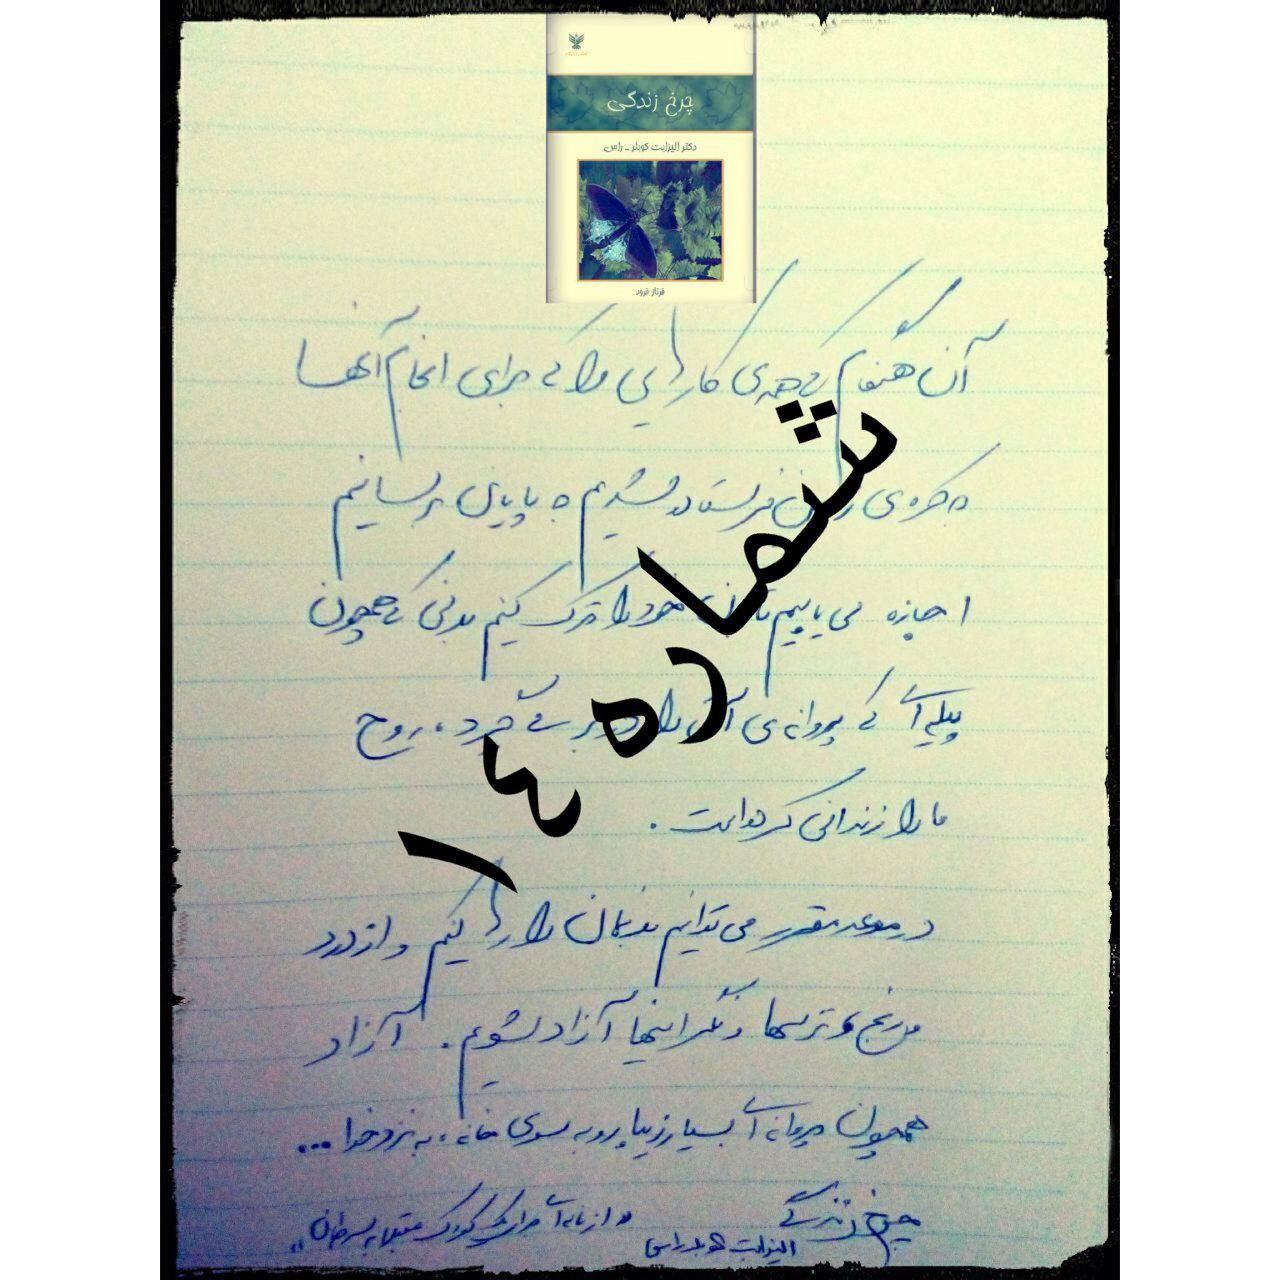 چرخ زندگی
دکتر الیزابت کوبلر ـ راس
فرناز فرود
آن هنگام که همه‌ی کارهایی را که برای انجام آنها
به کره‌ی زمین فرستاده شدیم به پایان برسانیم
اجازه می‌یابیم تا بدن خود را ترک کنیم بدنی که همچون
پیله‌ای که پروانه‌ی آتی را در بر می‌گیرد، روح
ما را زندانی کرده است.
در موعد مقرر می‌توانیم بدنمان را رها کنیم و از درد
و رنج و ترسها و نگرانیها آزاد شویم. آزاد
همچون پروانه‌ای بسیار زیبا رو به سوی خانه، به نزد خدا ...
چرخ زندگی
الیزابت کوبلر راس
"از نامه‌ای برای یک کودک مبتلا به سرطان"
شماره ۱۴